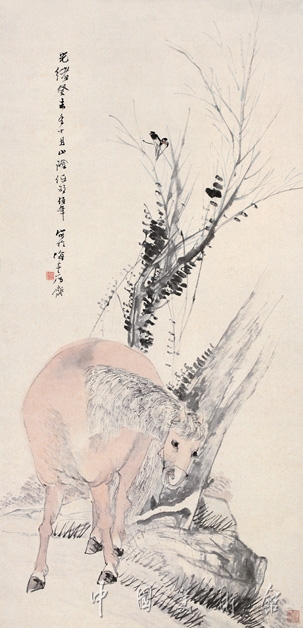 光緒癸未冬十月山陰任頤伯年
寫於海上齋
中國美術館